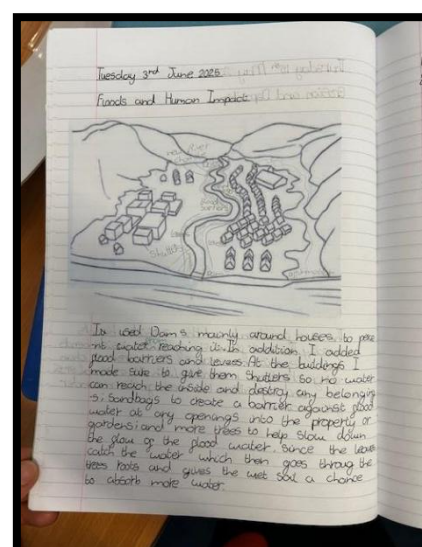 Tuesday 3rd June 2025
Floods and Human Impact
Shutters
I used Dams mainly around houses to preve
nt water reaching it. In addition I added
flood barriers and levees. At the buildings I
made sure to give them Shutters so no water
can reach the inside and destroy any belonging
s. Sandbags to create a barrier against flood
water at any openings into the property or
gardens and more trees to help slow down
the flow of the flood water. Since the leaves
catch the water which then goes through the
trees roots and gives the wet soil a chance
to absorb more water.